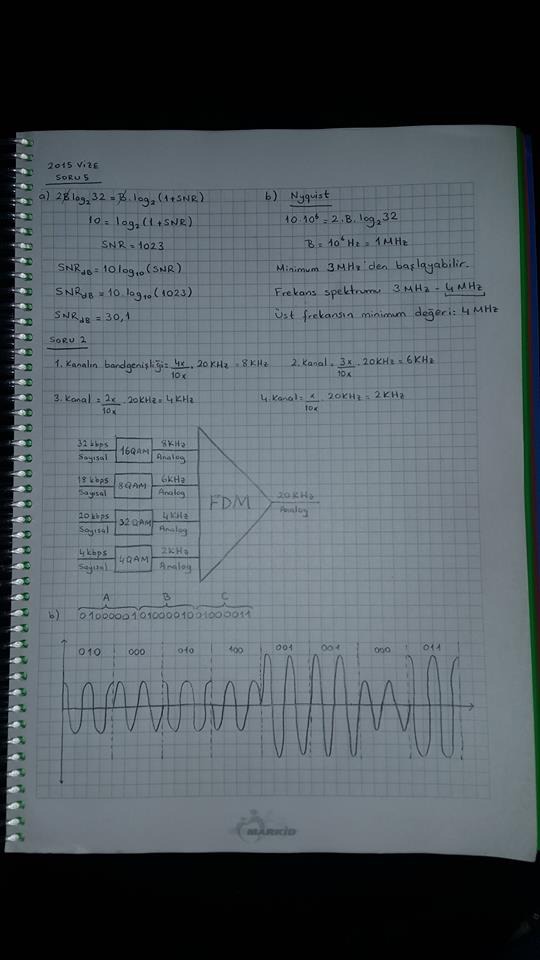 2015 VİZE
SORU 5
a) 2B log₂ 32 = B. log₂ (1+SNR)
10 = log₂ (1+SNR)
SNR = 1023
SNR dB = 10 log₁₀ (SNR)
SNR dB = 10. log₁₀ (1023)
SNR dB = 30,1
b) Nyquist
10.10⁶ = 2.B. log₂ 32
B = 10⁶ Hz = 1 MHz
Minimum 3 MHz'den başlayabilir.
Frekans spektrumu 3 MHz - 4 MHz
Üst frekansın minimum değeri: 4 MHz
SORU 2
1. Kanalın bandgenişliği = 4x/10x . 20 KHz = 8 KHz 2. Kanal = 3x/10x . 20 KHz = 6 KHz
3. Kanal = 2x/10x . 20 KHz = 4 KHz 4. Kanal = x/10x . 20 KHz = 2 KHz
32 kbps Sayısal 16QAM 8 KHz Analog
18 kbps Sayısal 8QAM 6 KHz Analog
20 kbps Sayısal 32QAM 4 KHz Analog
4 kbps Sayısal 4QAM 2 KHz Analog
FDM
20 KHz Analog
A B C
b) 010000010100001001000011
010 000 010 100 001 001 000 011
MARKİD